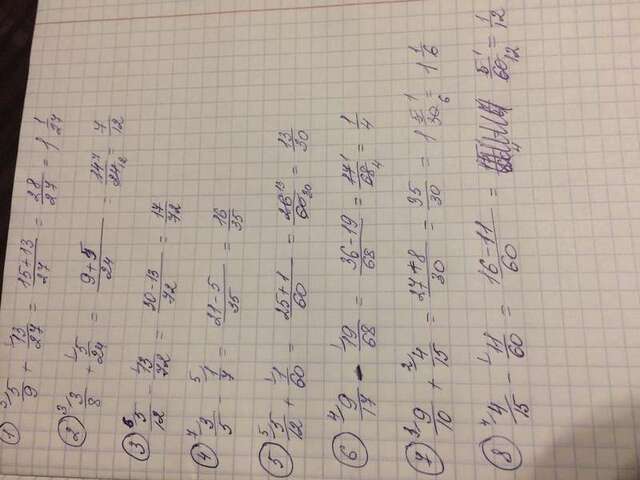 1) ³⁄ 5/9 + ¹⁄ 13/27 = 15+13/27 = 28/27 = 1 1/27
2) ³⁄ 3/8 + ¹⁄ 5/24 = 9+5/24 = 14⁷/24₁₂ = 7/12
3) ⁶⁄ 5/12 - ¹⁄ 13/72 = 30-13/72 = 17/72
4) ⁷⁄ 3/5 - ⁵⁄ 1/7 = 21-5/35 = 16/35
5) ⁵⁄ 5/12 + ¹⁄ 1/60 = 25+1/60 = 26¹³/60₃₀ = 13/30
6) ⁴⁄ 9/17 - ¹⁄ 19/68 = 36-19/68 = 17¹/68₄ = 1/4
7) ³⁄ 9/10 + ²⁄ 4/15 = 27+8/30 = 35/30 = 1 5¹/30₆ = 1 1/6
8) ⁴⁄ 4/15 - ¹⁄ 11/60 = 16-11/60 = 5¹/60₁₂ = 1/12